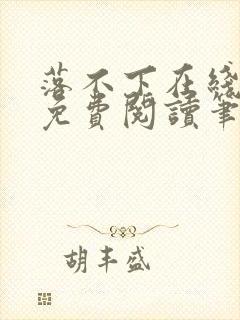 落不下在綫
免費閱讀筆
胡丰盛